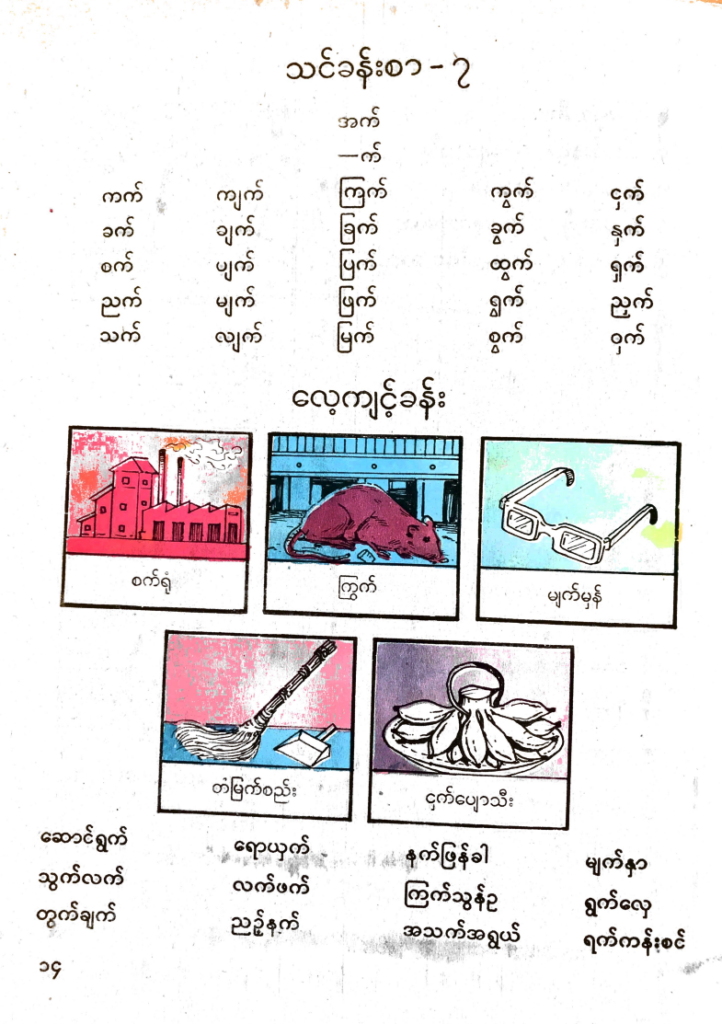 သင်ခန်းစာ - ၇
အက်
—က်
ကက် ကျက် ကြက် ကွက် ငှက်
ခက် ချက် ခြက် ခွက် နှက်
စက် ပျက် ပြက် ထွက် ရှက်
ညက် မျက် ဖြက် ရွက် ညှက်
သက် လျက် မြက် စွက် ဝှက်
လေ့ကျင့်ခန်း
စက်ရုံ ကြွက် မျက်မှန်
တံမြက်စည်း ငှက်ပျောသီး
ဆောင်ရွက် ရောယှက် နက်ဖြန်ခါ မျက်နှာ
သွက်လက် လက်ဖက် ကြက်သွန်ဥ ရွက်လှေ
တွက်ချက် ညဉ့်နက် အသက်အရွယ် ရက်ကန်းစင်
၁၄